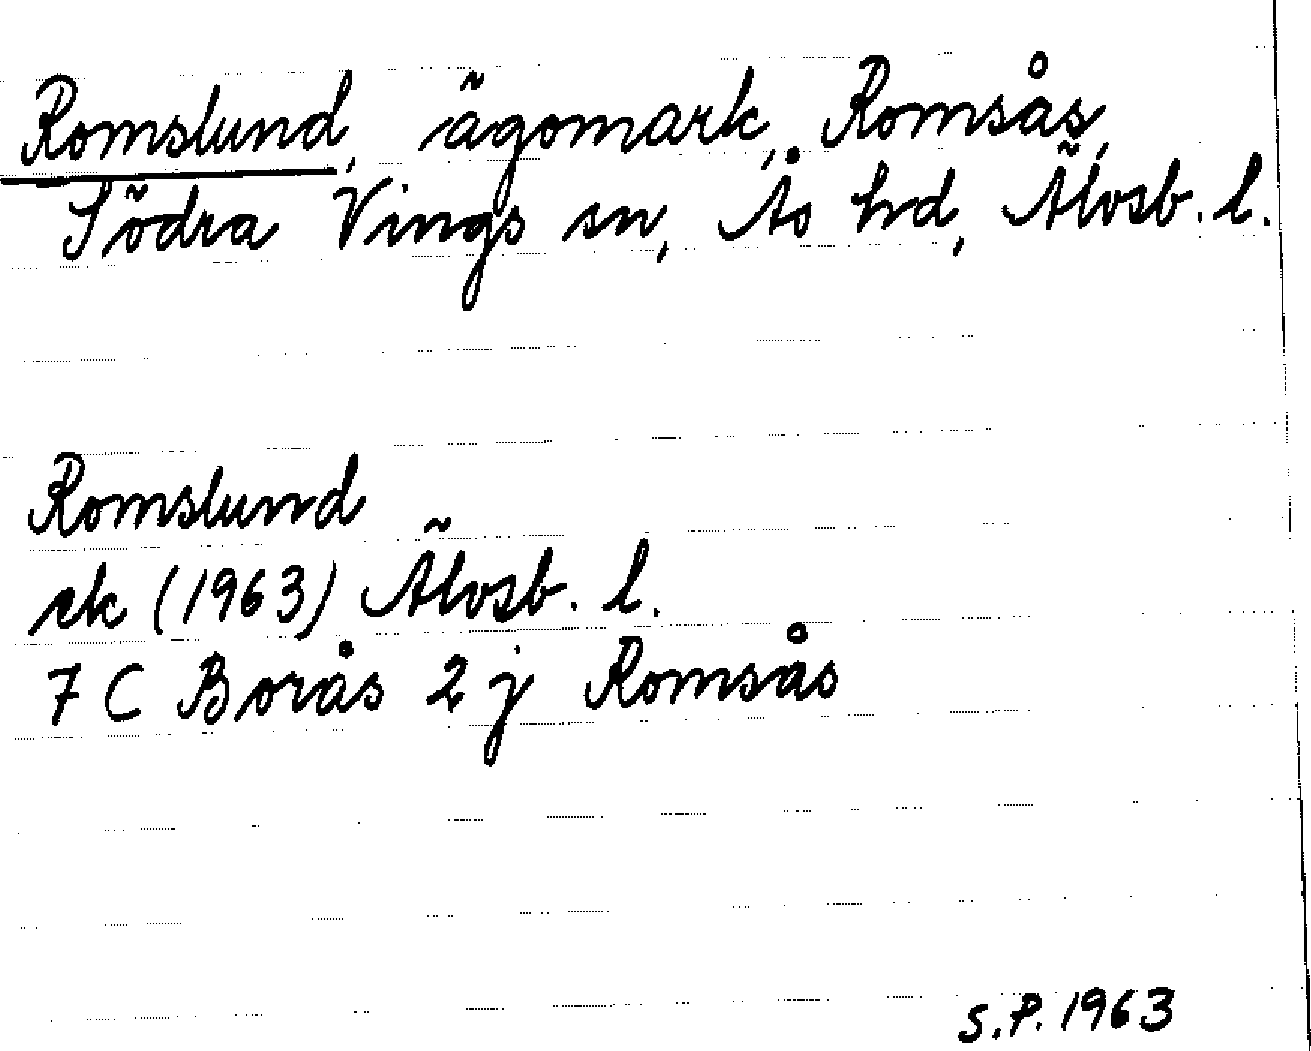 Romslund, ägomark, Romsås,
Södra Vings sn, Ås hd, Älvsb. l.
Romslund
ek (1963) Älvsb. l.
7 C Borås 2 j Romsås
S.P. 1963